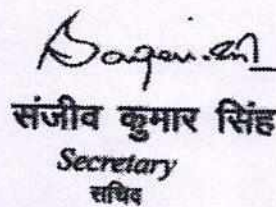 संजीव कुमार सिंह
Secretary
सचिव